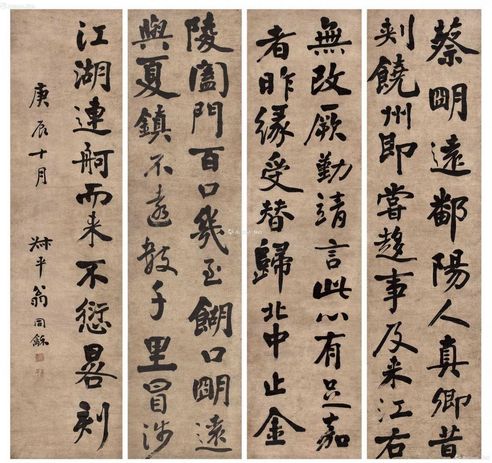 蔡明遠鄱陽人真卿昔
刺饒州即嘗趨事及来江右
無改厥勤靖言此心有足嘉
者昨緣受替歸北中止金
陵闔門百口幾至餬口明遠
與夏鎮不遠數千里冒涉
江湖連舸而来不愆晷刻
庚辰十月
叔平翁同龢